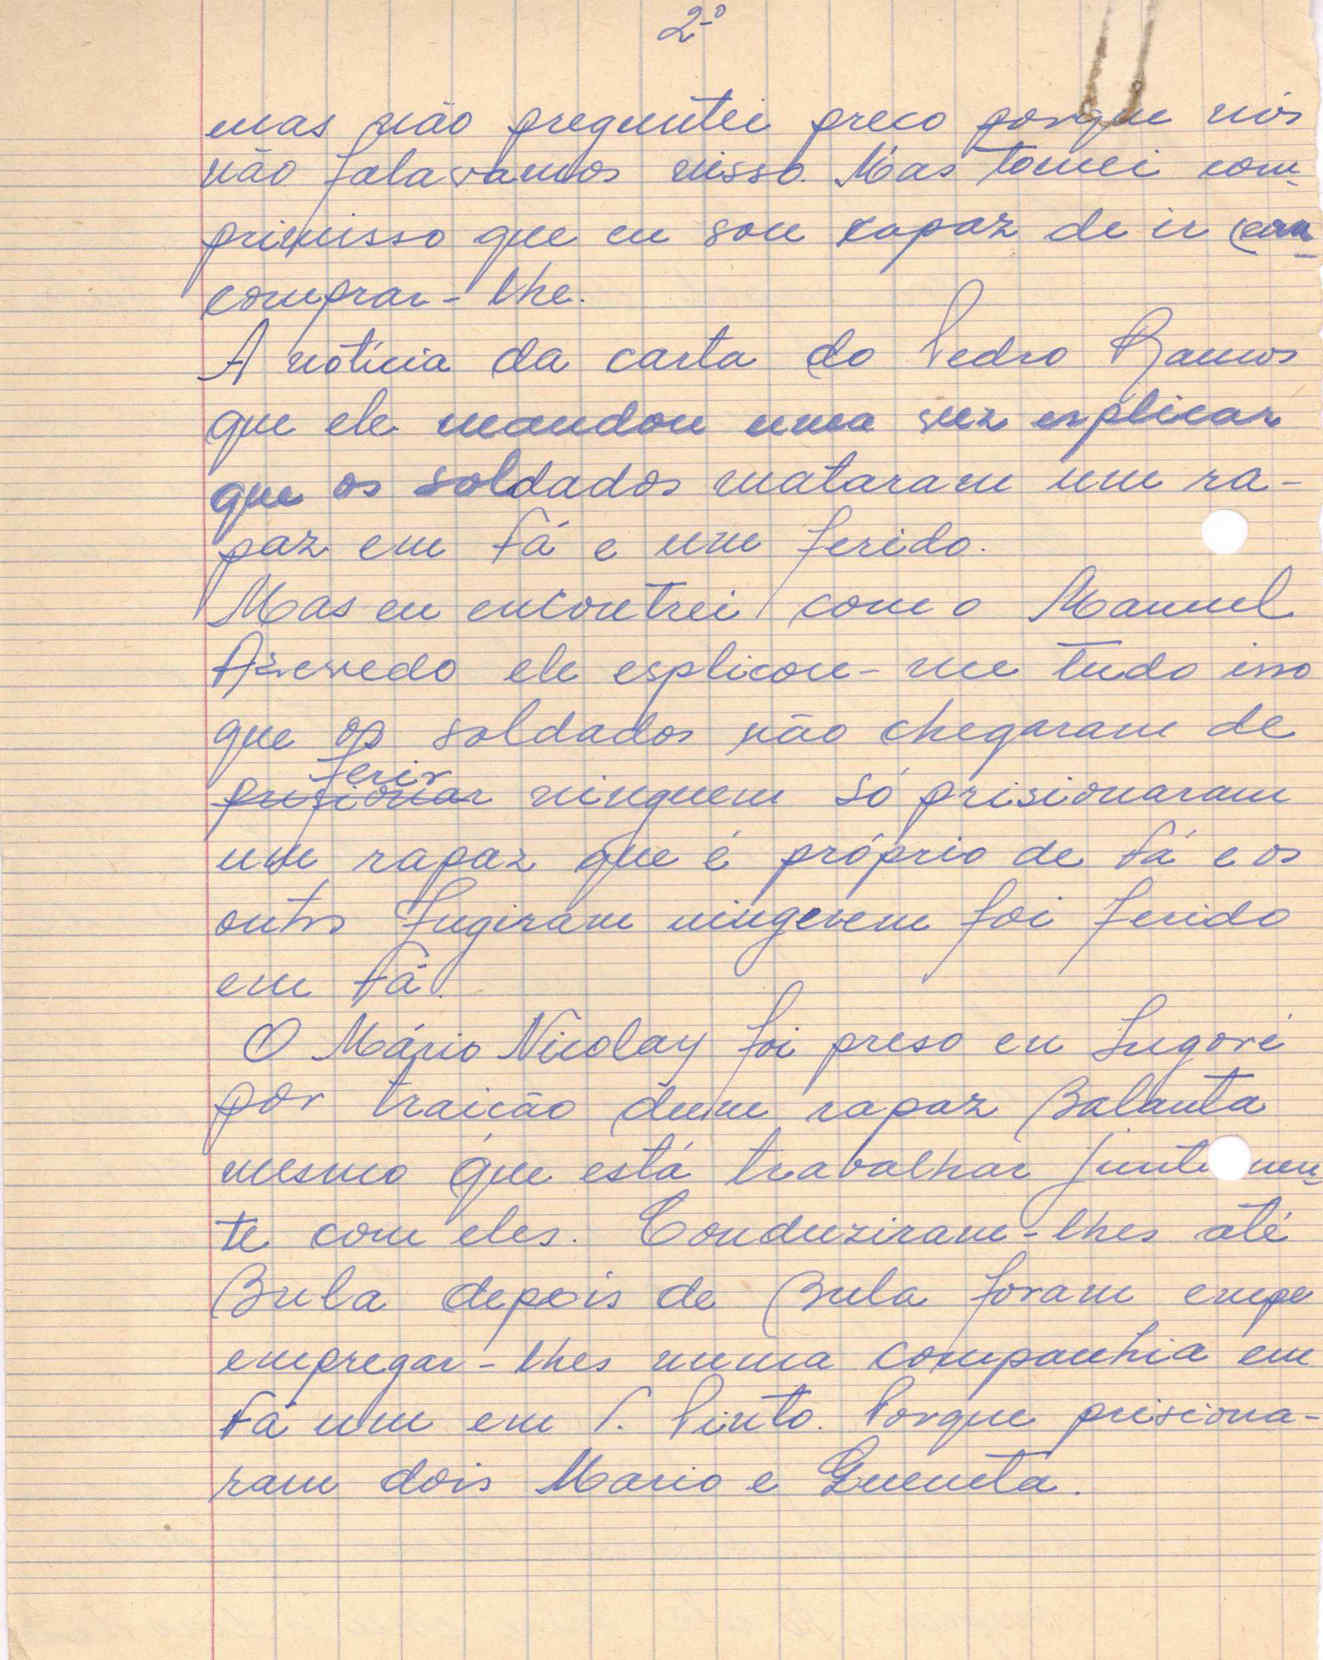 2º
mas não preguntei preco porque nós
não falavamos nisso. Mas tomei com-
primisso que eu sou capaz de ir com
comprar-lhe.
A nótícia da carta do Pedro Ramos
que ele mandou uma vez explicar
que os soldados mataram um ra-
paz em Fá e um ferido.
Mas eu encontrei com o Manuel
Azevedo ele esplicou-me tudo isso
que os soldados não chegaram de
prisionar ferir ninguem só prisionaram
um rapaz que é próprio de Fá e os
outros fugiram ninguem foi ferido
em Fá.
O Mário Nicolay foi preso em Lugoré
por traicão dum rapaz Balanta
mesmo que está trabalhar juntamen-
te com eles. Conduziram-lhes até
Bula depois de Bula foram empe
empregar-lhes numa companhia em
Fá um em T. Pinto. Porque prisiona-
ram dois Mario e Quemtá.